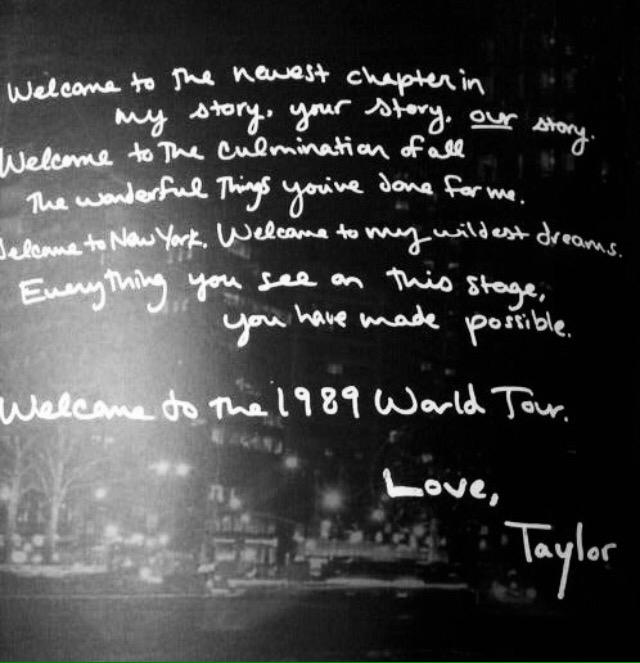 Welcome to The newest chapter in
my story, your story, our story.
Welcome to The culmination of all
The wonderful Things you've done for me.
Welcome to New York. Welcome to my wildest dreams.
Everything you see on this stage,
you have made possible.
Welcome to The 1989 World Tour.
Love,
Taylor